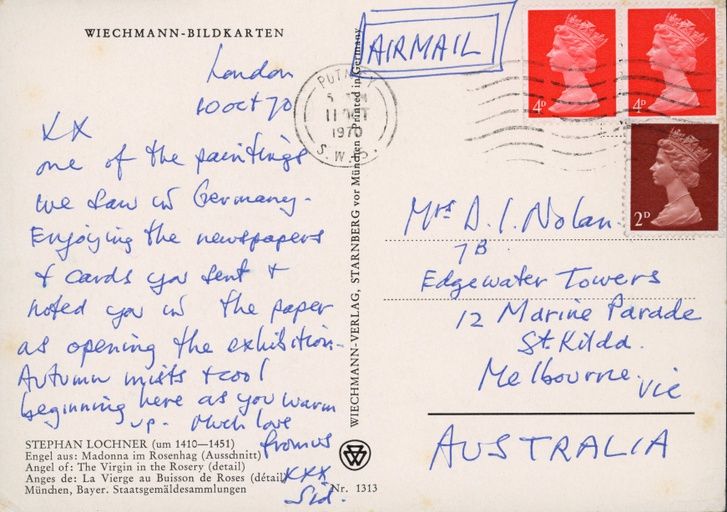 WIECHMANN-BILDKARTEN
London
10 Oct 70
XX
one of the paintings
we saw in Germany.
Enjoying the newspapers
& cards you sent &
noted you in the paper
as opening the exhibition.
Autumn mists & cool
beginning here as you warm
up. Much love
from us
XXX
Sid.
STEPHAN LOCHNER (um 1410—1451)
Engel aus: Madonna im Rosenhag (Ausschnitt)
Angel of: The Virgin in the Rosery (detail)
Anges de: La Vierge au Buisson de Roses (détail)
München, Bayer. Staatsgemäldesammlungen
Nr. 1313
WIECHMANN-VERLAG, STARNBERG vor München · Printed in Germany
AIRMAIL
PUTNEY
11 OCT
1970
S.W.15.
4D
4D
2D
Mrs D. I. Nolan.
7B
Edgewater Towers
12 Marine Parade
St. Kilda.
Melbourne. Vic
AUSTRALIA